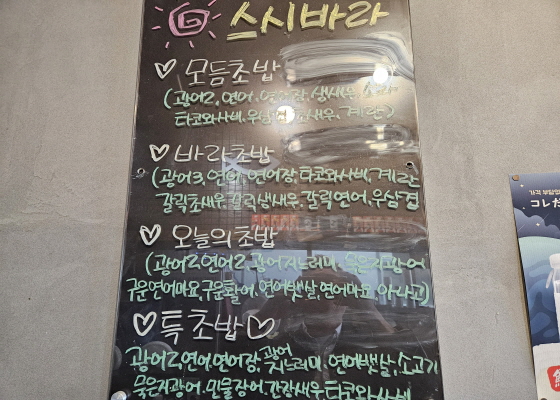 스시바라
♡ 모듬초밥
(광어2, 연어, 연어장, 생새우,
타코와사비, 우삼겹, 초새우, 계란)
♡ 바라초밥
(광어3, 연어, 연어장, 타코와사비, 계란
갈릭초새우, 갈릭생새우, 갈릭연어, 우삼겹
♡ 오늘의초밥
(광어2, 연어2, 광어지느러미, 묵은지광어
구운연어마요, 구운활어, 연어뱃살, 연어마요, 아나고)
♡특초밥♡
광어2, 연어, 연어장, 광어지느러미, 연어뱃살, 소고기
묵은지광어, 민물장어, 간장새우, 타코와사비
コレだ